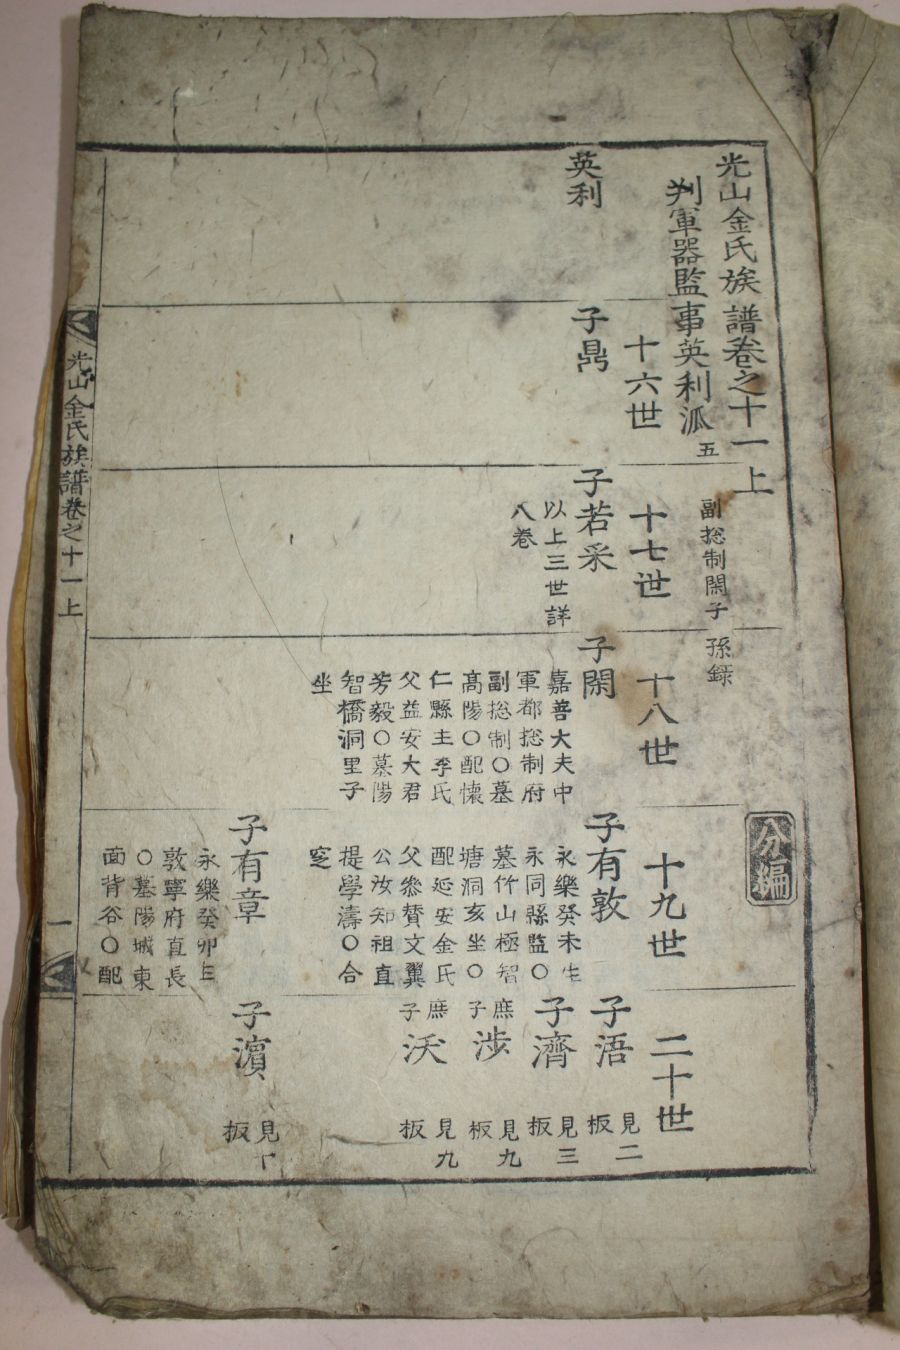 光山金氏族譜卷之十一上
判軍器監事英利派五
副摠制閑子孫錄
分編
十六世
十七世
十八世
十九世
二十世
英利
子鼎
子若采
以上三世詳
八卷
子閑
嘉善大夫中
軍都摠制府
副摠制〇墓
高陽〇配懷
仁縣主李氏
父益安大君
芳毅〇墓陽
智橋洞里子
坐
子有敦
永樂癸未生
永同縣監〇
墓竹山極智
塘洞亥坐〇
配延安金氏
父參贊文翼
公汝知祖直
提學濤〇合
窆
子浯
見二
板
子濟
見三
板
庶子涉
見九
板
庶子沃
見九
板
子有章
永樂癸卯生
敦寧府直長
〇墓陽城東
面背谷〇配
子濵
見十
板
光山金氏族譜卷之十一上
一